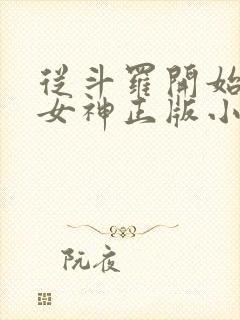 從斗羅開始
女神正版小
阮夜